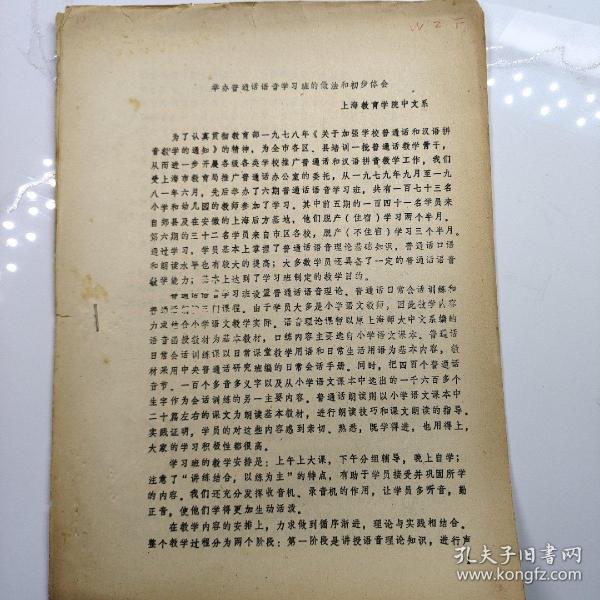 W Z F
举办普通话语音学习班的做法和初步体会
上海教育学院中文系
为了认真贯彻教育部一九七八年《关于加强学校普通话和汉语拼
音教学的通知》的精神，为全市各区、县培训一批普通话教学骨干，
从而进一步开展各级各类学校推广普通话和汉语拼音教学工作，我们
受上海市教育局推广普通话办公室的委托，从一九七九年九月至一九
八一年六月，先后举办了六期普通话语音学习班，共有一百七十三名
小学和幼儿园的教师参加了学习。其中前五期的一百四十一名学员来
自郊县及在安徽的上海后方基地，他们脱产（住宿）学习两个半月。
第六期的三十二名学员来自市区各校，脱产（不住宿）学习三个半月。
通过学习，学员基本上掌握了普通话语音理论基础知识，普通话口语
和朗读水平也有较大的提高；大多数学员还具备了一定的普通话语音
教学能力；基本上达到了学习班制定的教学目的。
普通话语音学习班设置普通话语音理论、普通话日常会话训练和
普通话朗读三门课程。由于学员大多是小学语文教师，因此教学内容
力求结合小学语文教学实际。语音理论课暂以原上海师大中文系编的
语音函授教材为基本教材，口练内容主要选自小学语文课本。普通话
日常会话训练课以日常课堂教学用语和日常生活用语为基本内容，教
材采用中央普通话研究班编的日常会话手册。同时，把四百个普通话
音节、一百个多音多义字以及从小学语文课本中选出的一千六百多个
生字作为会话训练的另一主要内容。普通话朗读则以小学语文课本中
二十篇左右的课文为朗读基本教材，进行朗读技巧和课文朗读的指导。
实践证明，学员的对这些内容感到亲切、熟悉，既学得进，也用得上，
大家的学习积极性都很高。
学习班的教学安排是：上午上大课，下午分组辅导，晚上自学；
注意了“讲练结合，以练为主”的特点，有助于学员接受并巩固所学
的内容。我们还充分发挥收音机、录音机的作用，让学员多听音，勤
正音，使他们学得更加生动活泼。
在教学内容的安排上，力求做到循序渐进，理论与实践相结合。
整个教学过程分为两个阶段：第一阶段是讲授语音理论知识，进行声
孔夫子旧书网
www.kongfz.com